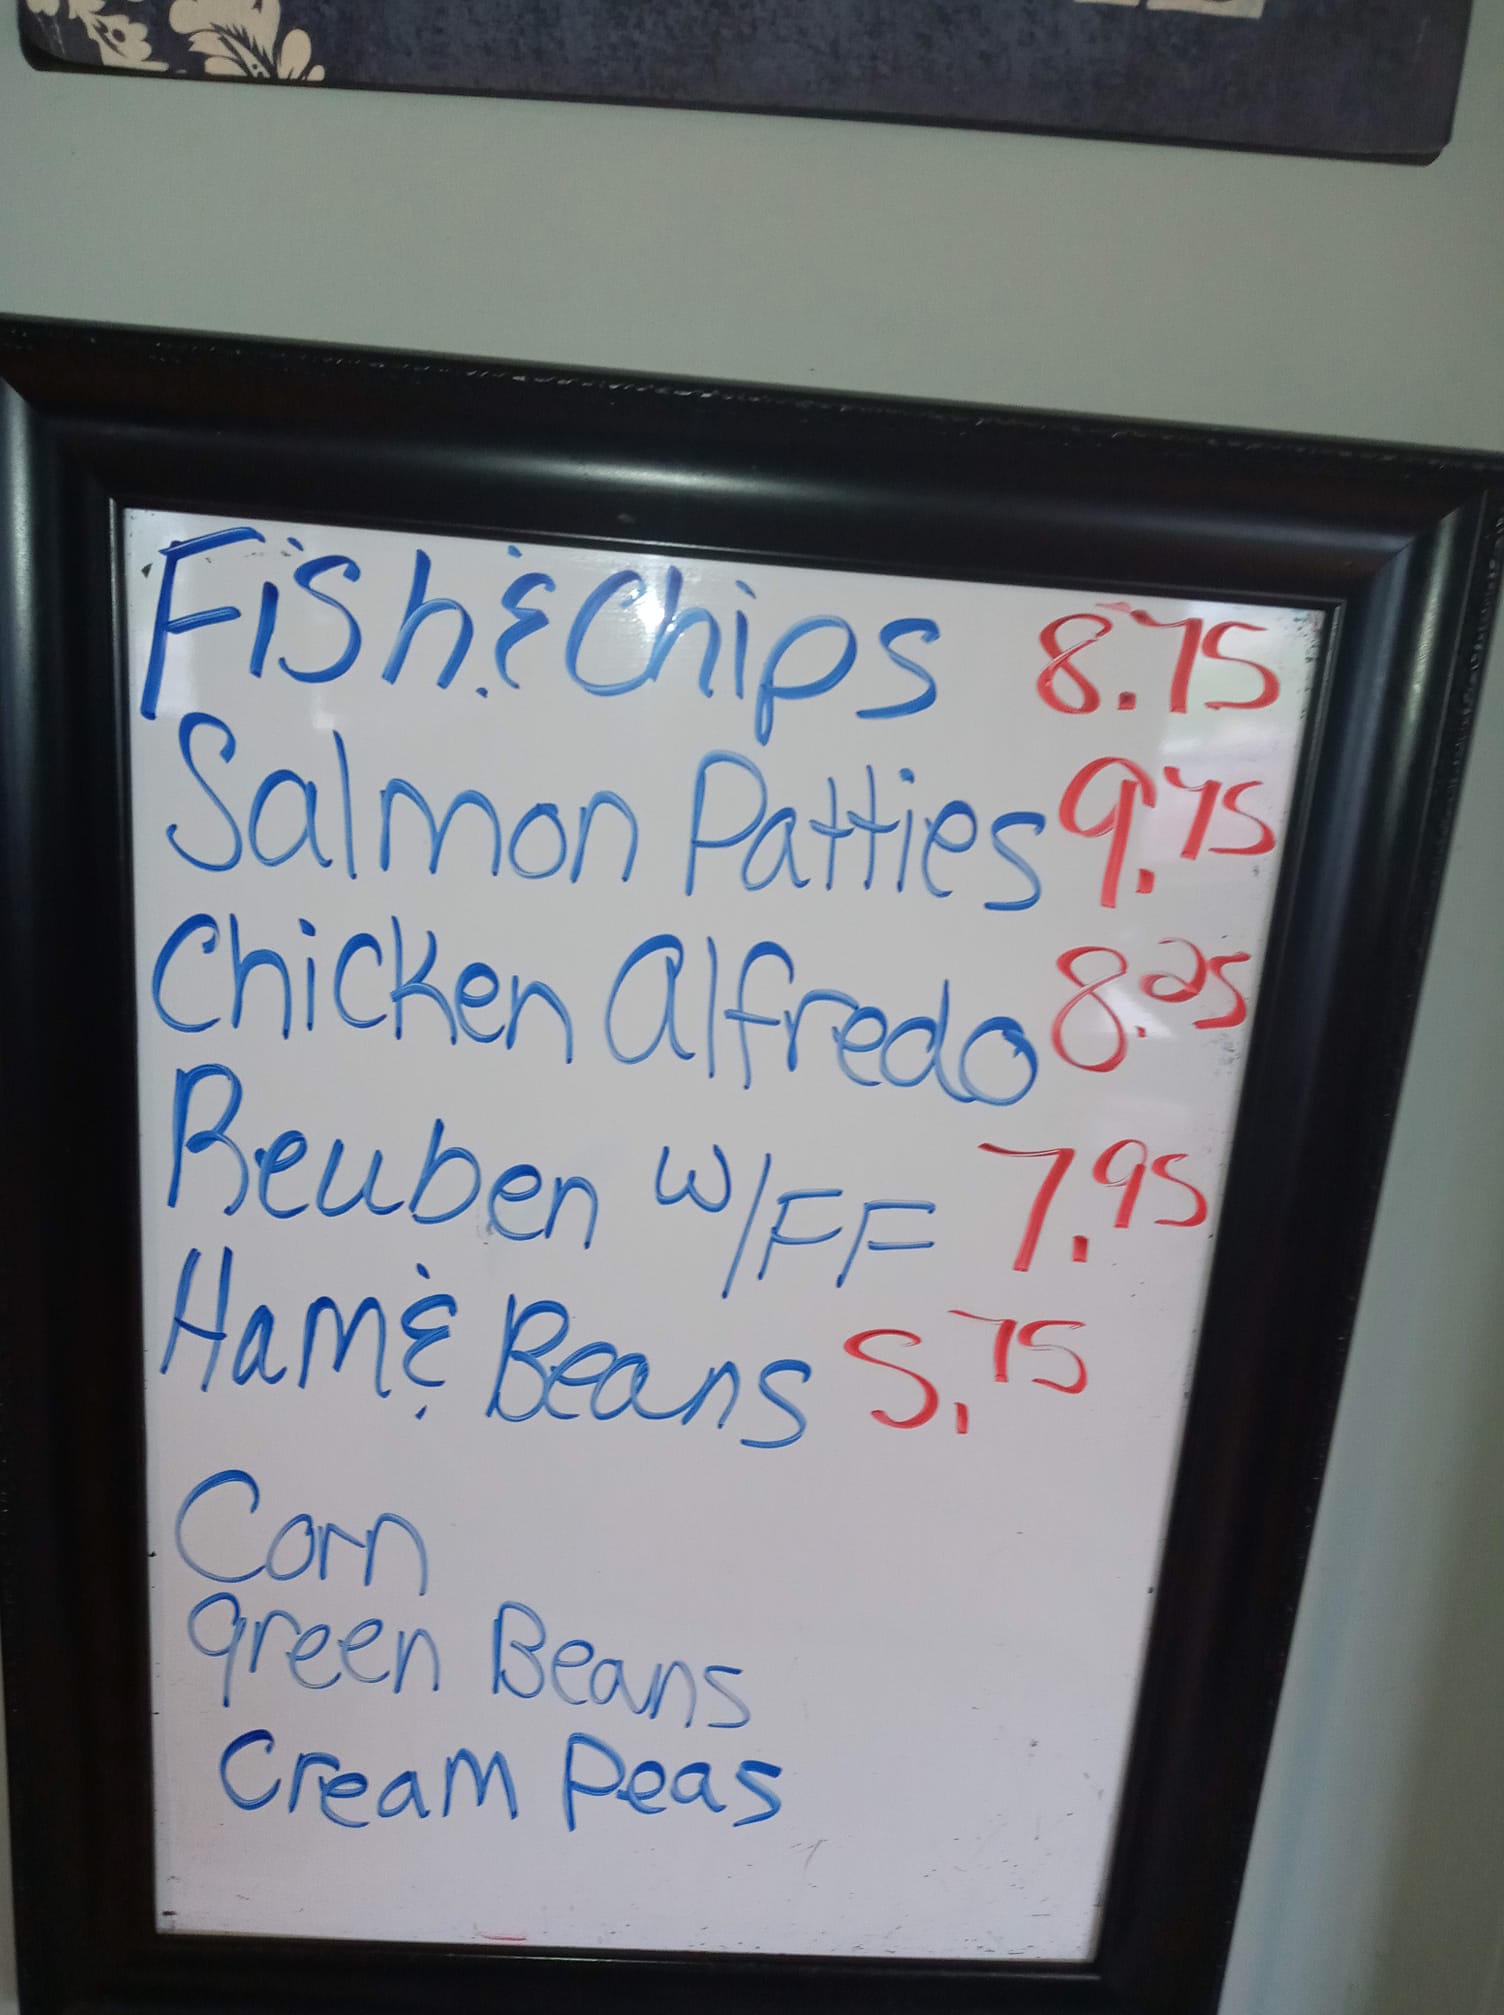 Fish & Chips 8.75
Salmon Patties 9.75
Chicken Alfredo 8.25
Reuben w/FF 7.95
Ham & Beans 5.75
Corn
green Beans
Cream Peas